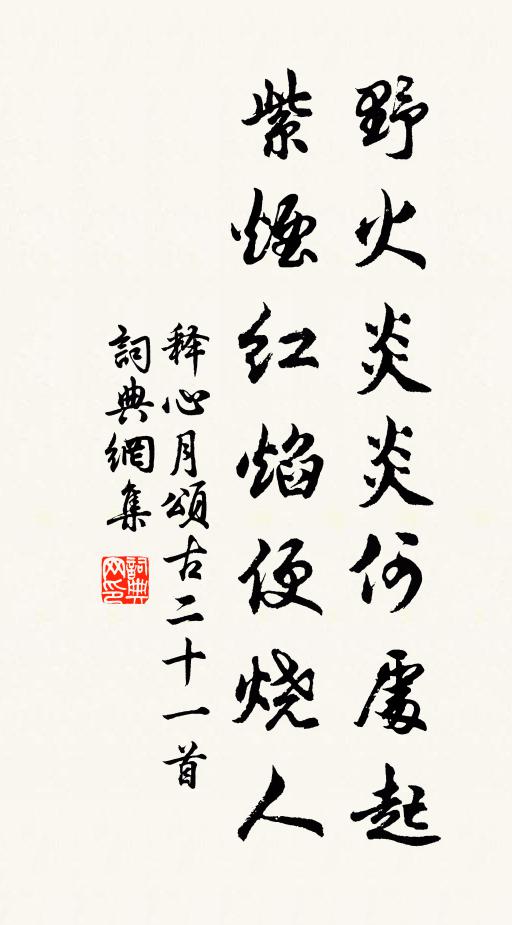 野火炎炎何處起
紫煙红焰便燒人
释心月頌古二十一首
詞典網集
詞典网印